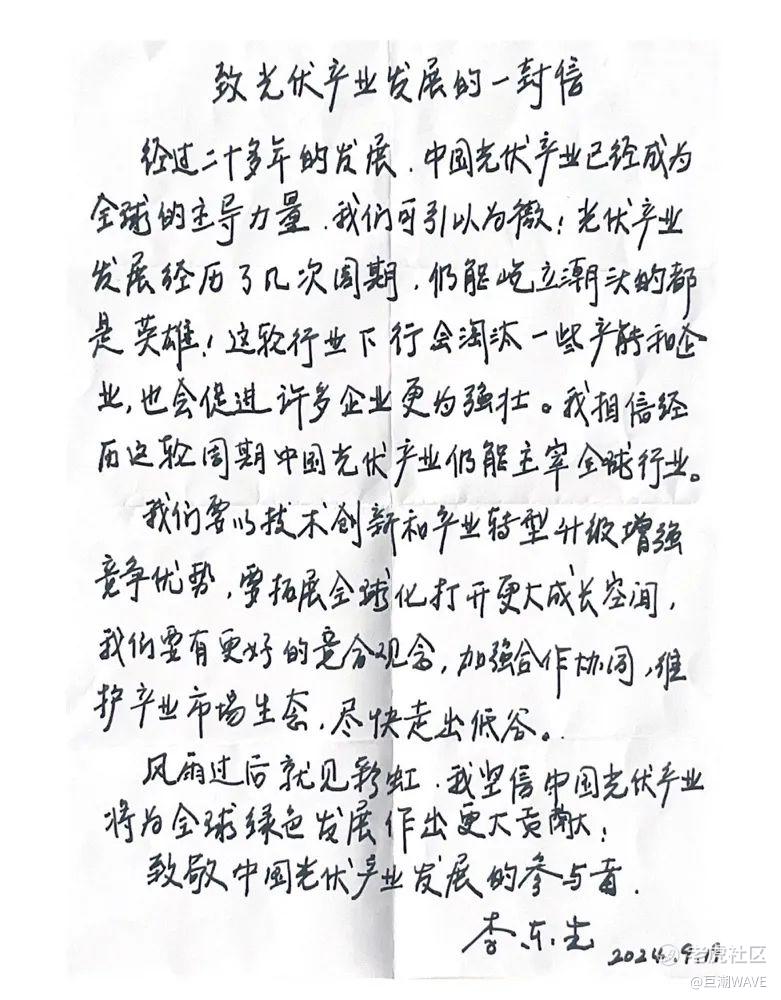 致光伏产业发展的一封信
经过二十多年的发展，中国光伏产业已经成为
全球的主导力量，我们可引以为傲！光伏产业
发展经历了几次周期，仍能屹立潮头的都
是英雄！这轮行业下行会淘汰一些产能和企
业，也会促进许多企业更为强壮。我相信经
历这轮周期中国光伏产业仍能主宰全球行业。
我们要以技术创新和产业转型升级增强
竞争优势，要拓展全球化打开更大成长空间，
我们要有更好的竞合观念，加强合作协同，维
护产业市场生态，尽快走出低谷。
风雨过后就见彩虹，我坚信中国光伏产业
将为全球绿色发展作出更大贡献！
致敬中国光伏产业发展的参与者.
李东生 2024.9.
老虎社区
@巨潮WAVE